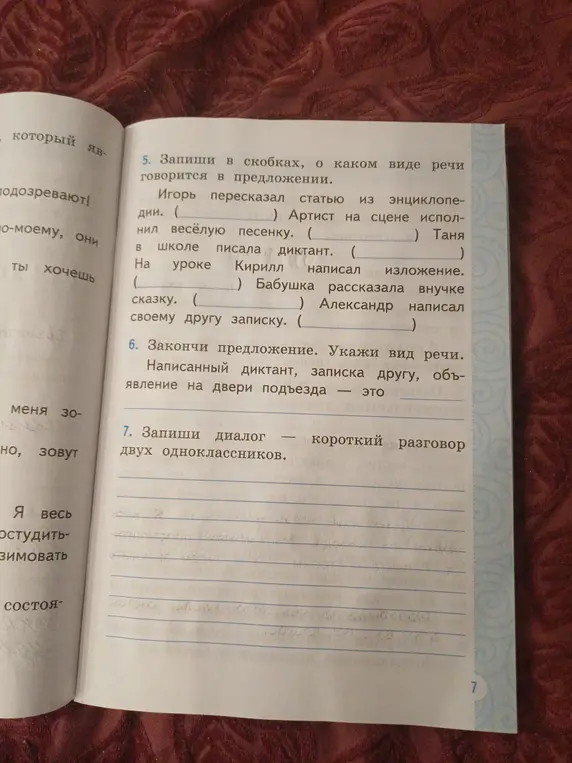 который яв-
подозревают!
по-моему, они
ты хочешь
меня зо-
зовут
Я весь
зимовать
состоя-
5. Запиши в скобках, о каком виде речи
говорится в предложении.
Игорь пересказал статью из энциклопе-
дии. (____________) Артист на сцене испол-
нил весёлую песенку. (____________) Таня
в школе писала диктант. (____________)
На уроке Кирилл написал изложение.
(____________) Бабушка рассказала внучке
сказку. (____________) Александр написал
своему другу записку. (____________)
6. Закончи предложение. Укажи вид речи.
Написанный диктант, записка другу, объ-
явление на двери подъезда — это
7. Запиши диалог — короткий разговор
двух одноклассников.
7